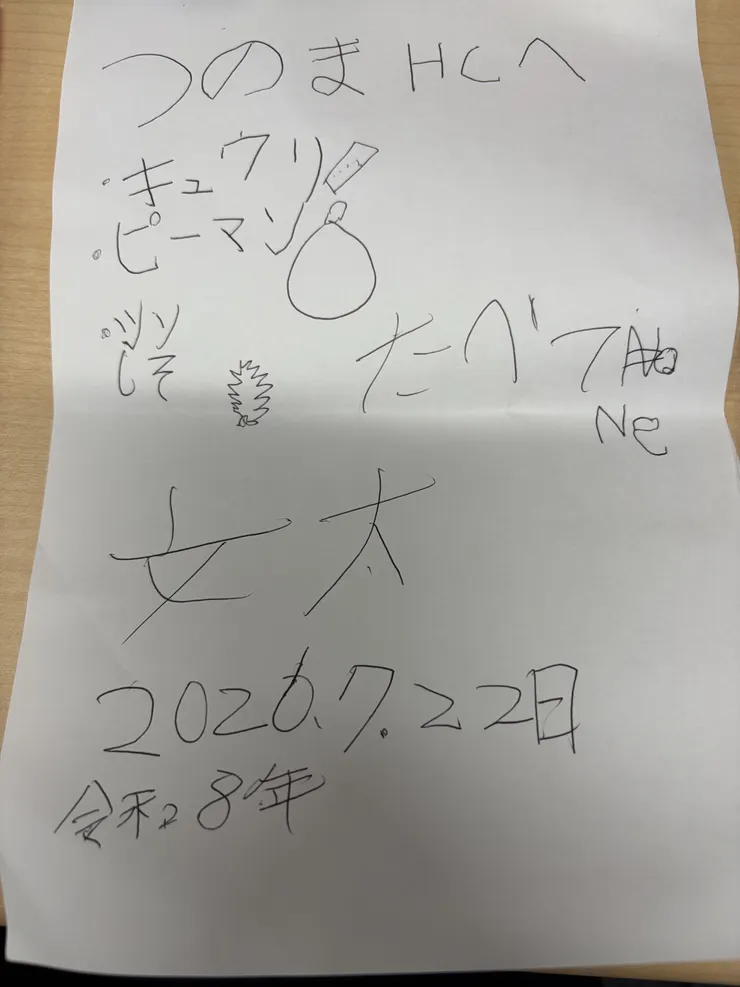 つのまHCへ
・キュウリ
・ピーマン
・しそ
たべてね
Ne
安太
2026.7.22日
令和8年